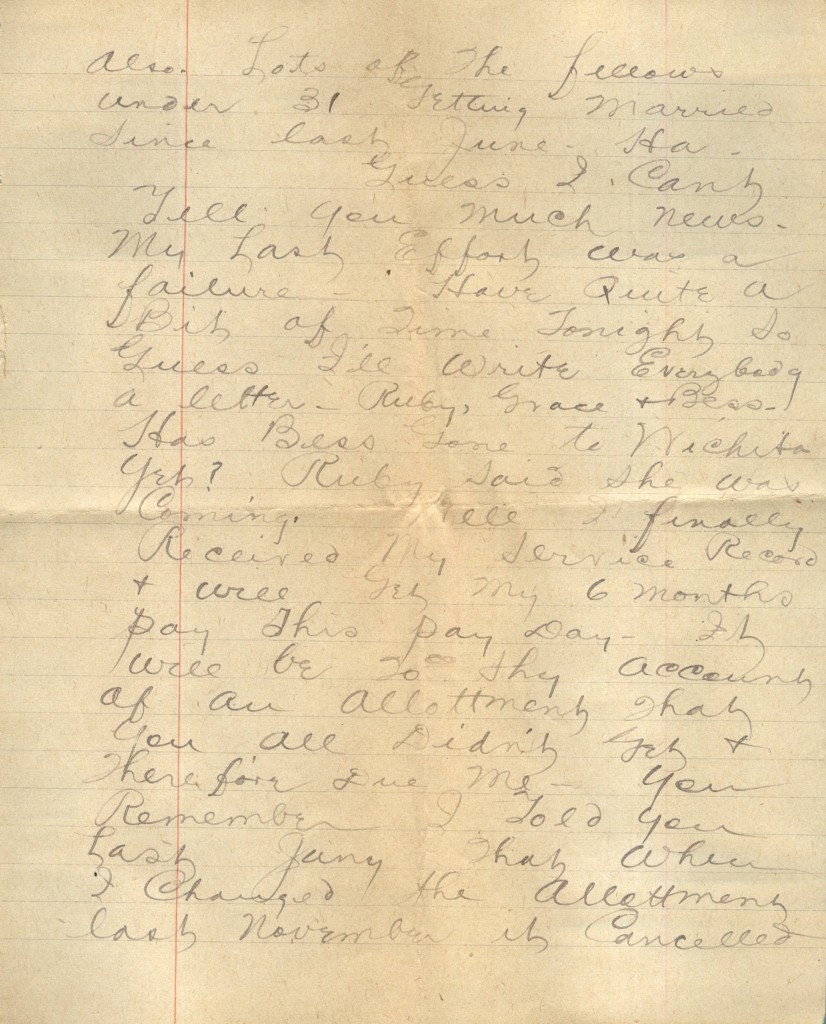 Also. Lots of The fellows
under 31 Getting Married
Since last June - Ha -
Guess I Can't
Tell you much news -
My Last Effort was a
failure - Have Quite a
Bit of Time Tonight So
Guess I'll Write Everybody
a letter - Ruby, Grace + Bess -
Has Bess Gone to Wichita
Yet? Ruby Said She was
Coming. Well I finally
Received My Service Record
+ will Get My 6 months
pay This pay Day - It
will be 20 00 Shy account
of an Allottment That
You all Didn't Get +
Therefore Due Me - You
Remember I Told you
Last Jany That When
I Changed the Allottment
last November it Cancelled